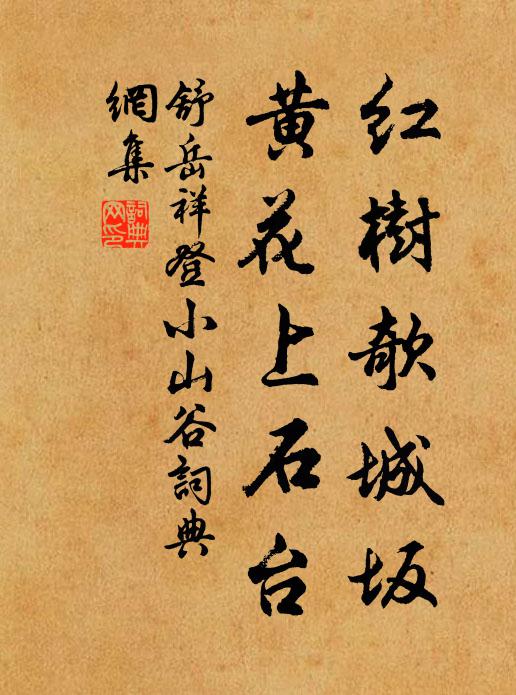 红樹欹城坂
黄花上石台
舒岳祥登小山谷詞典
網集
詞典
网印